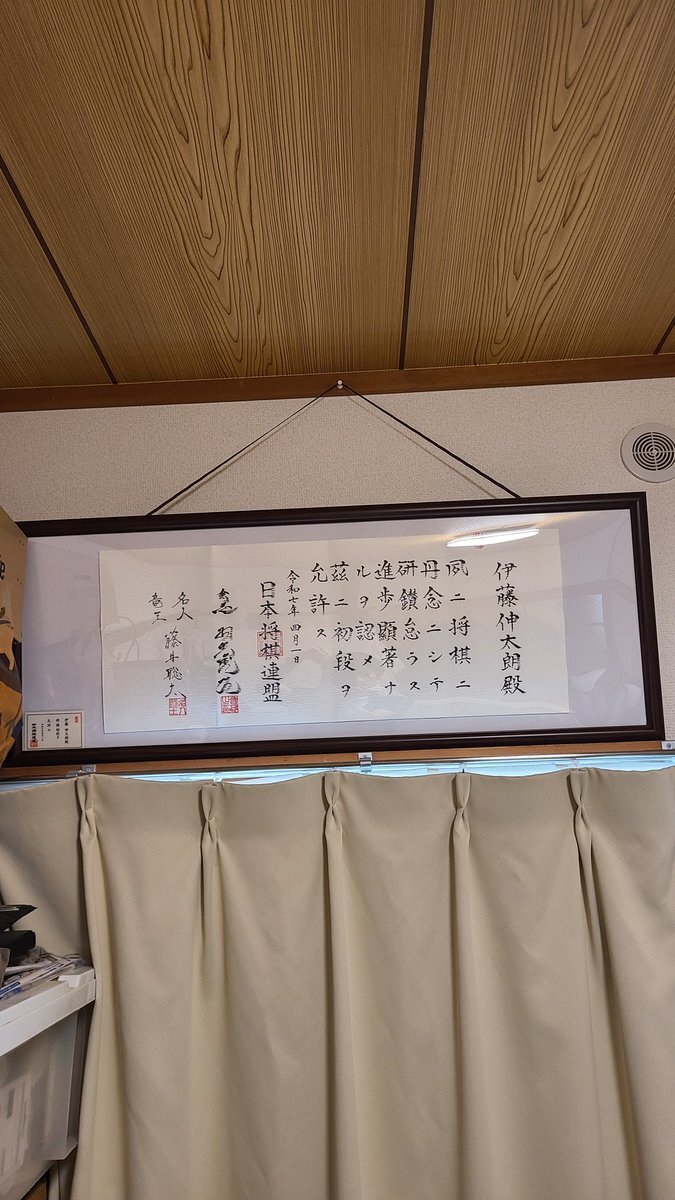 伊藤伸太朗殿
夙ニ将棋ニ
丹念ニシテ
研鑽怠ラス
進歩顕著ナ
ルヲ認メ
茲ニ初段ヲ
允許ス
令和七年四月一日
日本将棋連盟
名人
竜王
藤井聡太